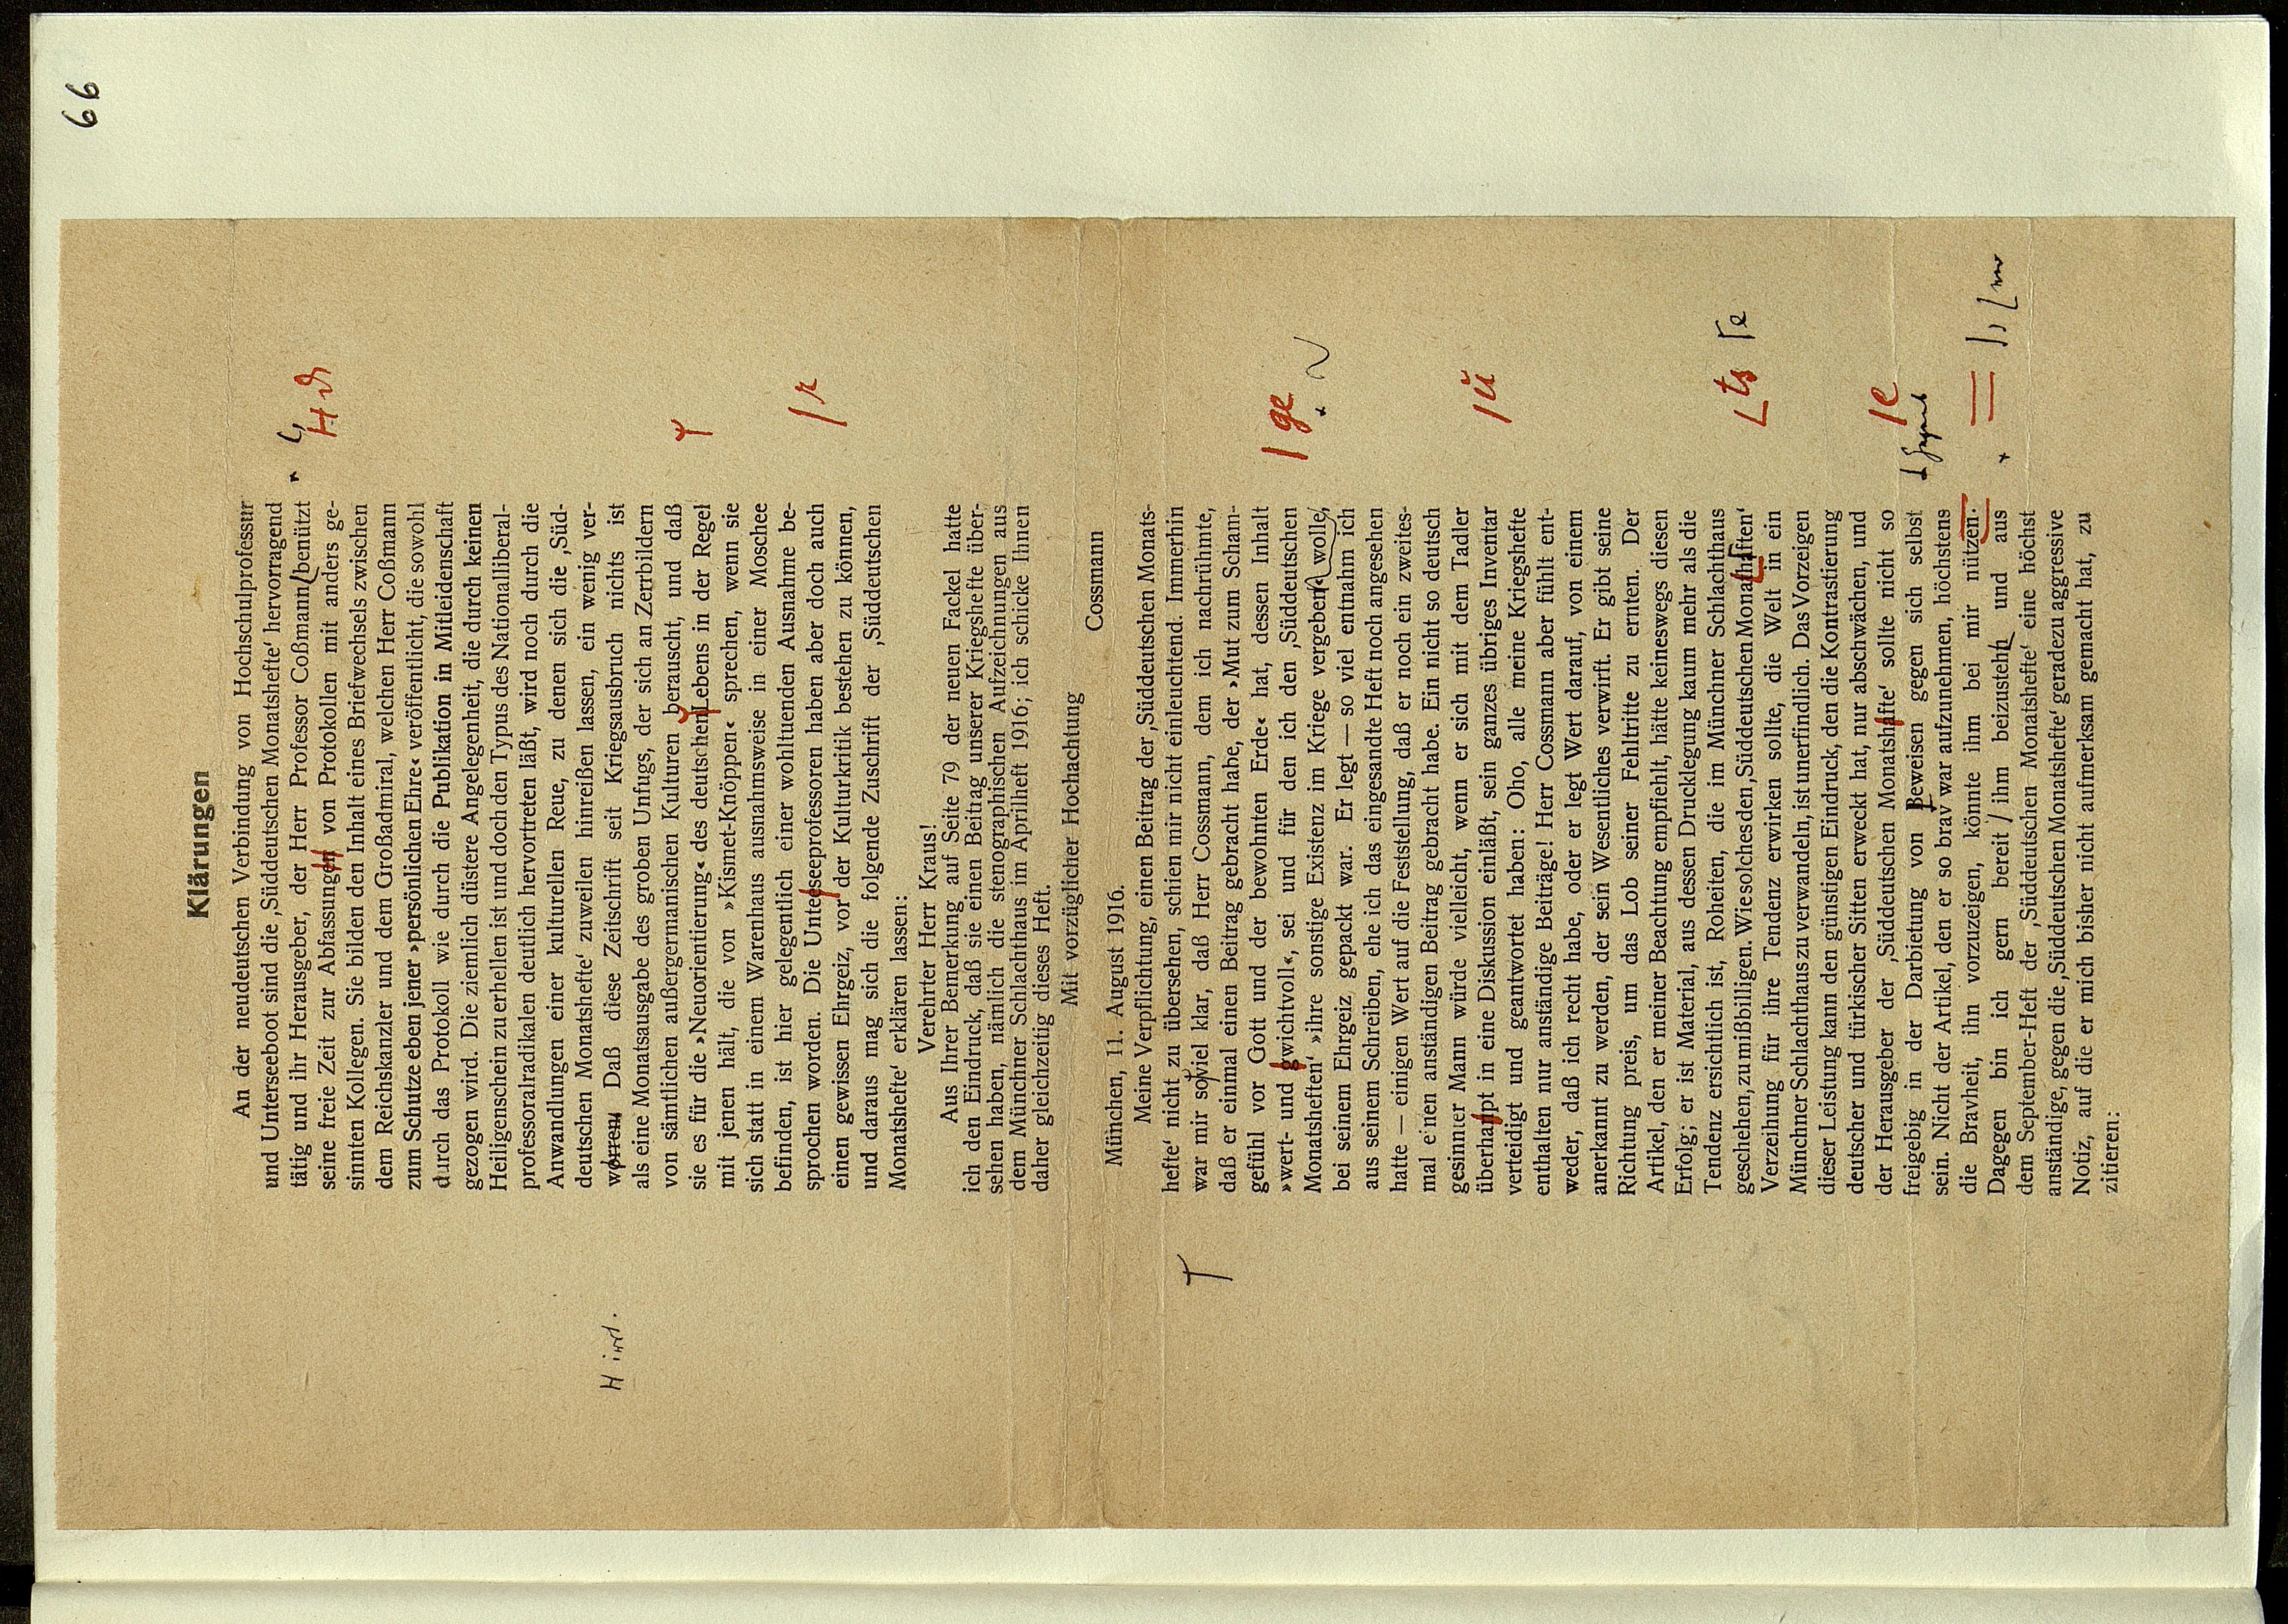 66
Klärungen
An der neudeutschen Verbindung von Hochschulprofessur
und Unterseeboot sind die ‚Süddeutschen Monatshefte‘ hervorragend
tätig und ihr Herausgeber, der Herr Professor Coßmann benützt
seine freie Zeit zur Abfassungen von Protokollen mit anders ge-
sinnten Kollegen. Sie bilden den Inhalt eines Briefwechsels zwischen
dem Reichskanzler und dem Großadmiral, welchen Herr Coßmann
zum Schutze eben jener »persönlichen Ehre« veröffentlicht, die sowohl
durch das Protokoll wie durch die Publikation in Mitleidenschaft
gezogen wird. Die ziemlich düstere Angelegenheit, die durch keinen
Heiligenschein zu erhellen ist und doch den Typus des Nationalliberal-
professoralradikalen deutlich hervortreten läßt, wird noch durch die
Anwandlungen einer kulturellen Reue, zu denen sich die ‚Süd-
deutschen Monatshefte‘ zuweilen hinreißen lassen, ein wenig ver-
worren. Daß diese Zeitschrift seit Kriegsausbruch nichts ist
H irrt.
als eine Monatsausgabe des groben Unfugs, der sich an Zerrbildern
von sämtlichen außergermanischen Kulturen berauscht, und daß
sie es für die »Neuorientierung« des deutschen Lebens in der Regel
mit jenen hält, die von »Kismet-Knöppen« sprechen, wenn sie
sich statt in einem Warenhaus ausnahmsweise in einer Moschee
befinden, ist hier gelegentlich einer wohltuenden Ausnahme be-
sprochen worden. Die Unteeseeprofessoren haben aber doch auch
r
einen gewissen Ehrgeiz, vor der Kulturkritik bestehen zu können,
und daraus mag sich die folgende Zuschrift der ‚Süddeutschen
Monatshefte‘ erklären lassen:
Verehrter Herr Kraus!
Aus Ihrer Bemerkung auf Seite 79 der neuen Fackel hatte
ich den Eindruck, daß sie einen Beitrag unserer Kriegshefte über-
sehen haben, nämlich die stenographischen Aufzeichnungen aus
dem Münchner Schlachthaus im Aprilheft 1916; ich schicke Ihnen
daher gleichzeitig dieses Heft.
Mit vorzüglicher Hochachtung
Cossmann
München, 11. August 1916.
Meine Verpflichtung, einen Beitrag der ‚Süddeutschen Monats-
hefte‘ nicht zu übersehen, schien mir nicht einleuchtend. Immerhin
war mir soviel klar, daß Herr Cossmann, dem ich nachrühmte,
daß er einmal einen Beitrag gebracht habe, der »Mut zum Scham-
gefühl vor Gott und der bewohnten Erde« hat, dessen Inhalt
»wert- und gwichtvoll«, sei und für den ich den ‚Süddeutschen
ge
Monatsheften‘ »ihre sonstige Existenz im Kriege vergeben« wolle,
bei seinem Ehrgeiz gepackt war. Er legt — so viel entnahm ich
aus seinem Schreiben, ehe ich das eingesandte Heft noch angesehen
hatte — einigen Wert auf die Feststellung, daß er noch ein zweites-
mal einen anständigen Beitrag gebracht habe. Ein nicht so deutsch
gesinnter Mann würde vielleicht, wenn er sich mit dem Tadler
überhanpt in eine Diskussion einläßt, sein ganzes übriges Inventar
ŭ
verteidigt und geantwortet haben: Oho, alle meine Kriegshefte
enthalten nur anständige Beiträge! Herr Cossmann aber fühlt ent-
weder, daß ich recht habe, oder er legt Wert darauf, von einem
anerkannt zu werden, der sein Wesentliches verwirft. Er gibt seine
Richtung preis, um das Lob seiner Fehltritte zu ernten. Der
Artikel, den er meiner Beachtung empfiehlt, hätte keineswegs diesen
Erfolg; er ist Material, aus dessen Drucklegung kaum mehr als die
Tendenz ersichtlich ist, Roheiten, die im Münchner Schlachthaus
geschehen, zu mißbilligen. Wie solches den ‚Süddeutschen Monahaften‘
ts e
Verzeihung für ihre Tendenz erwirken sollte, die Welt in ein
Münchner Schlachthaus zu verwandeln, ist unerfindlich. Das Vorzeigen
dieser Leistung kann den günstigen Eindruck, den die Kontrastierung
deutscher und türkischer Sitten erweckt hat, nur abschwächen, und
der Herausgeber der ‚Süddeutschen Monatshafte‘ sollte nicht so
e
freigebig in der Darbietung von Beweisen gegen sich selbst
sein. Nicht der Artikel, den er so brav war aufzunehmen, höchstens
die Bravheit, ihn vorzuzeigen, könnte ihm bei mir nützen.
Dagegen bin ich gern bereit ihm beizustehn und aus
dem September-Heft der ‚Süddeutschen Monatshefte‘ eine höchst
anständige, gegen die ‚Süddeutschen Monatshefte‘ geradezu aggressive
Notiz, auf die er mich bisher nicht aufmerksam gemacht hat, zu
zitieren: